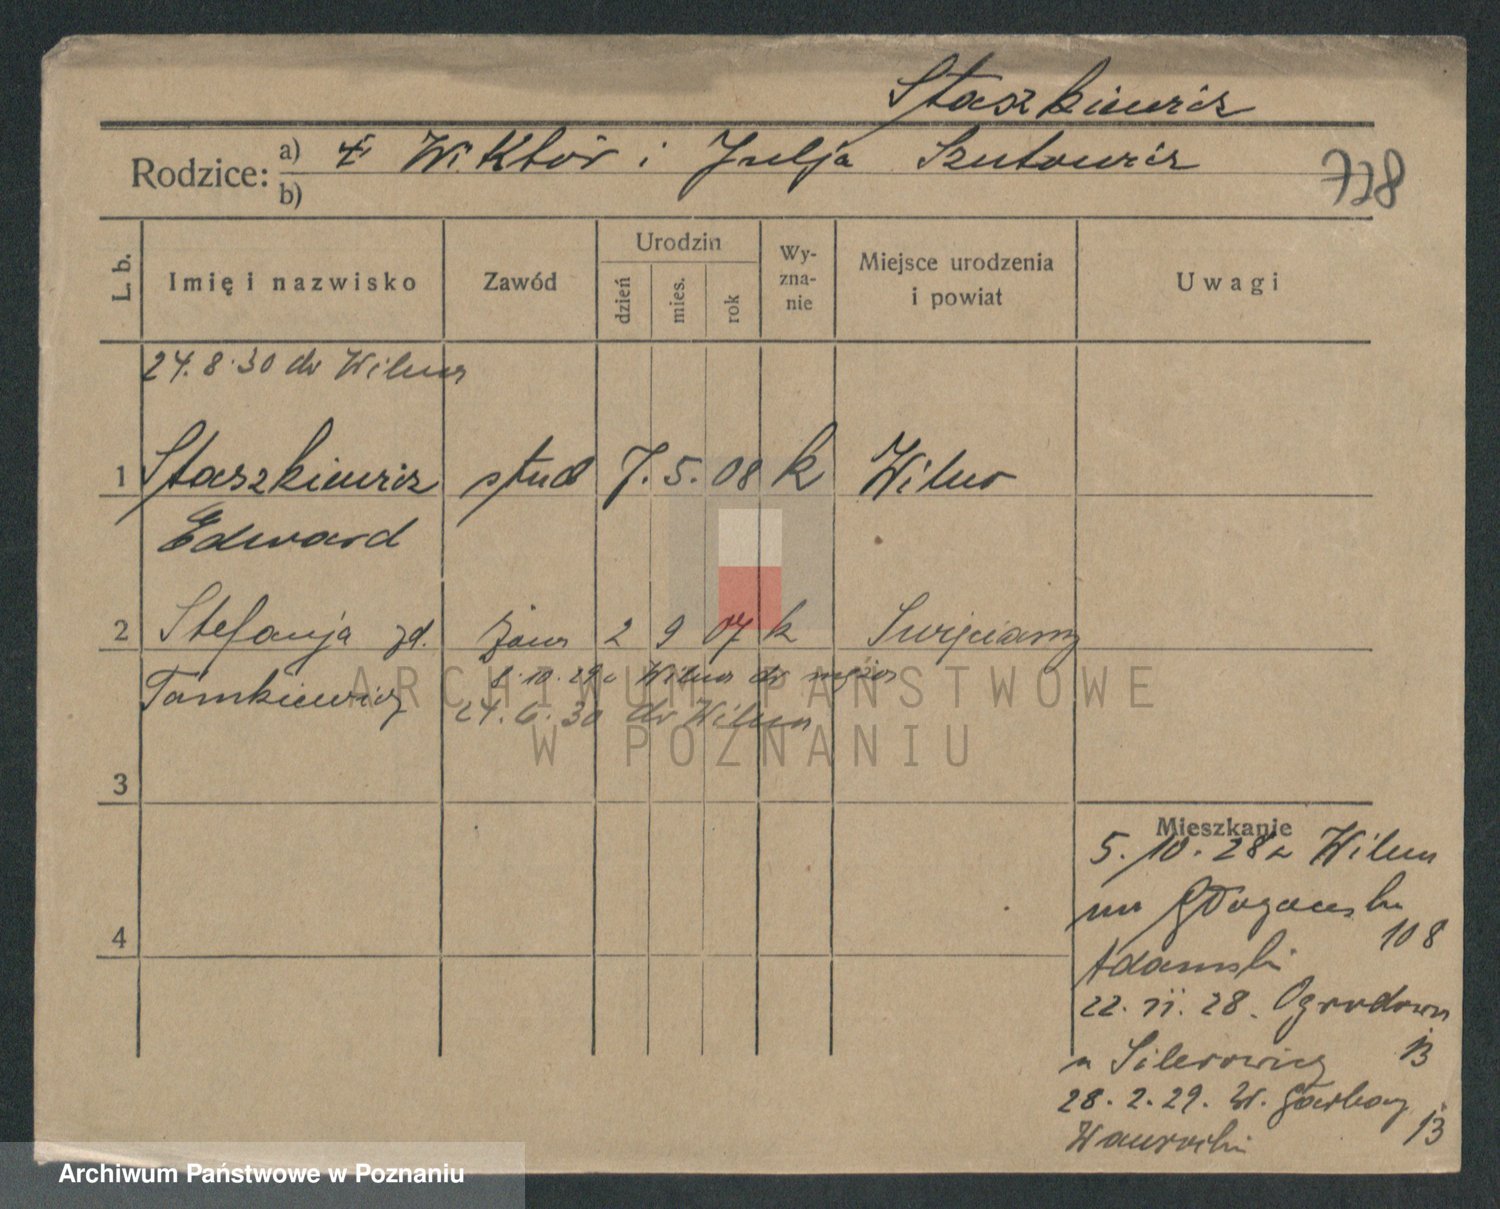 Staszkiewicz
Rodzice: a) Wiktór i Julja Szutowicz
b)
728
L. b. Imię i nazwisko Zawód Urodzin dzień mies. rok Wy-zna-nie Miejsce urodzenia i powiat Uwagi
24.8.30 do Wilna
1 Staszkiewicz stud 7. 5. 08 k Wilno
Edward
2 Stefanja zd. żona 2 9 07 k Święciany
Tomkiewicz 8.10.29 z Wilna do męża
24.6.30 do Wilna
3
4
Mieszkanie
5.10.28 z Wilna
na Głogowska
108
Adamski
22.11.28. Ogrodowa
13
28.2.29. W. Garbary
13
ARCHIWUM PAŃSTWOWE
W POZNANIU
Archiwum Państwowe w Poznaniu